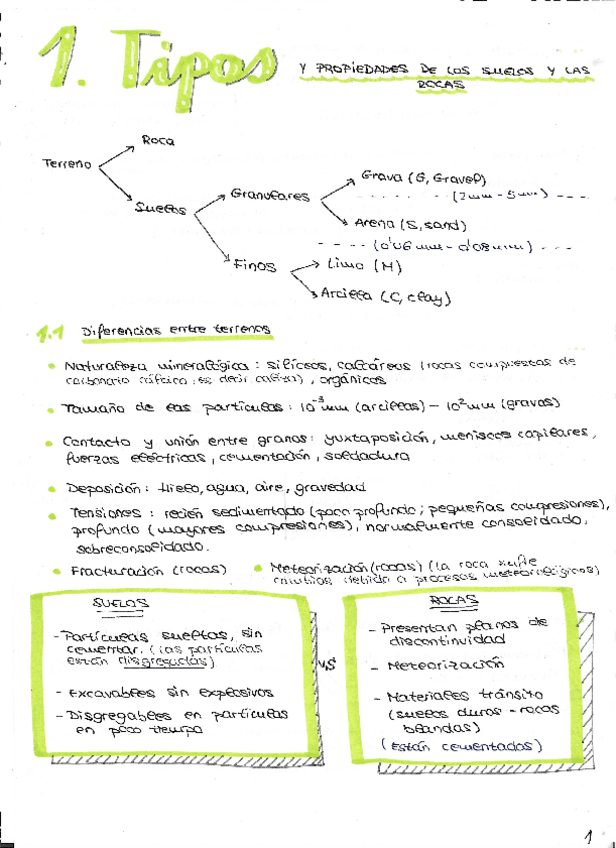 1. Tipos
Y PROPIEDADES DE LOS SUELOS Y LAS
ROCAS
Roca
Terreno
Suelos
Granulares
Finos
Grava (G, Gravel)
(2mm - 5mm)
Arena (S, sand)
(0'06 mm - 0'08mm)
Limo (M)
Arcilla (C, clay)
1.1 Diferencias entre terrenos
• Naturaleza mineralógica: silíceos, calcáreos (rocas compuestas de
carbonato cálcico, es decir caliza), orgánicos
• Tamaño de las partículas: 10⁻³mm (arcillas) - 10²mm (gravas)
• Contacto y unión entre granos: yuxtaposición, meniscos capilares,
fuerzas eléctricas, cementación, soldadura
• Deposición: hielo, agua, aire, gravedad
• Tensiones: recién sedimentado (poco profundo; pequeñas compresiones),
profundo (mayores compresiones), normalmente consolidado,
sobreconsolidado.
• Fracturación (rocas)
• Meteorización (rocas) (la roca sufre
cambios debido a procesos meteorológicos)
SUELOS
- Partículas sueltas, sin
cementar. (las partículas
están disgregadas)
- Excavables sin explosivos
- Disgregables en partículas
en poco tiempo
VS
ROCAS
- Presentan planos de
discontinuidad
- Meteorización
- Materiales tránsito
(suelos duros - rocas
blandas)
(Están cementados)
1